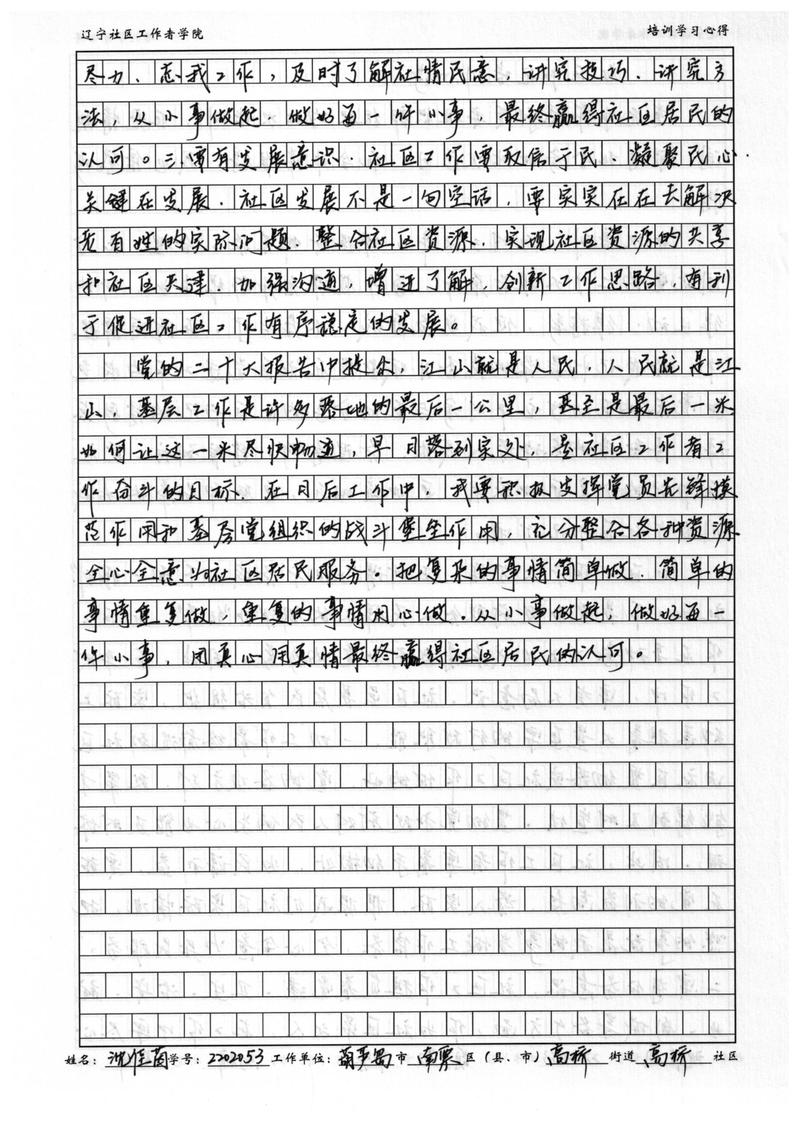 辽宁社区工作者学院 培训学习心得
尽力、忘我工作，及时了解社情民意，讲究技巧、讲究方
法，从小事做起，做好每一件小事，最终赢得社区居民的
认可。三要有发展意识，社区工作要取信于民，凝聚民心
关键在发展，社区发展不是一句空话，要实实在在去解决
老百姓的实际问题，整合社区资源，实现社区资源的共享
和社区共建，加强沟通，增进了解，创新工作思路，有利
于促进社区工作有序稳定的发展。
党的二十大报告中提出，江山就是人民，人民就是江
山，基层工作是许多落地的最后一公里，甚至是最后一米
如何让这一米尽快畅通，早日落到实处，是社区工作者工
作奋斗的目标，在日后工作中，我要积极发挥党员先锋模
范作用和基层党组织的战斗堡垒作用，充分整合各种资源
全心全意为社区居民服务。把复杂的事情简单做，简单的
事情重复做，重复的事情用心做，从小事做起，做好每一
件小事，用真心用真情最终赢得社区居民的认可。
姓名：沈佳茵 学号：2202053 工作单位：葫芦岛 市 南票 区（县、市）高桥 街道 高桥 社区